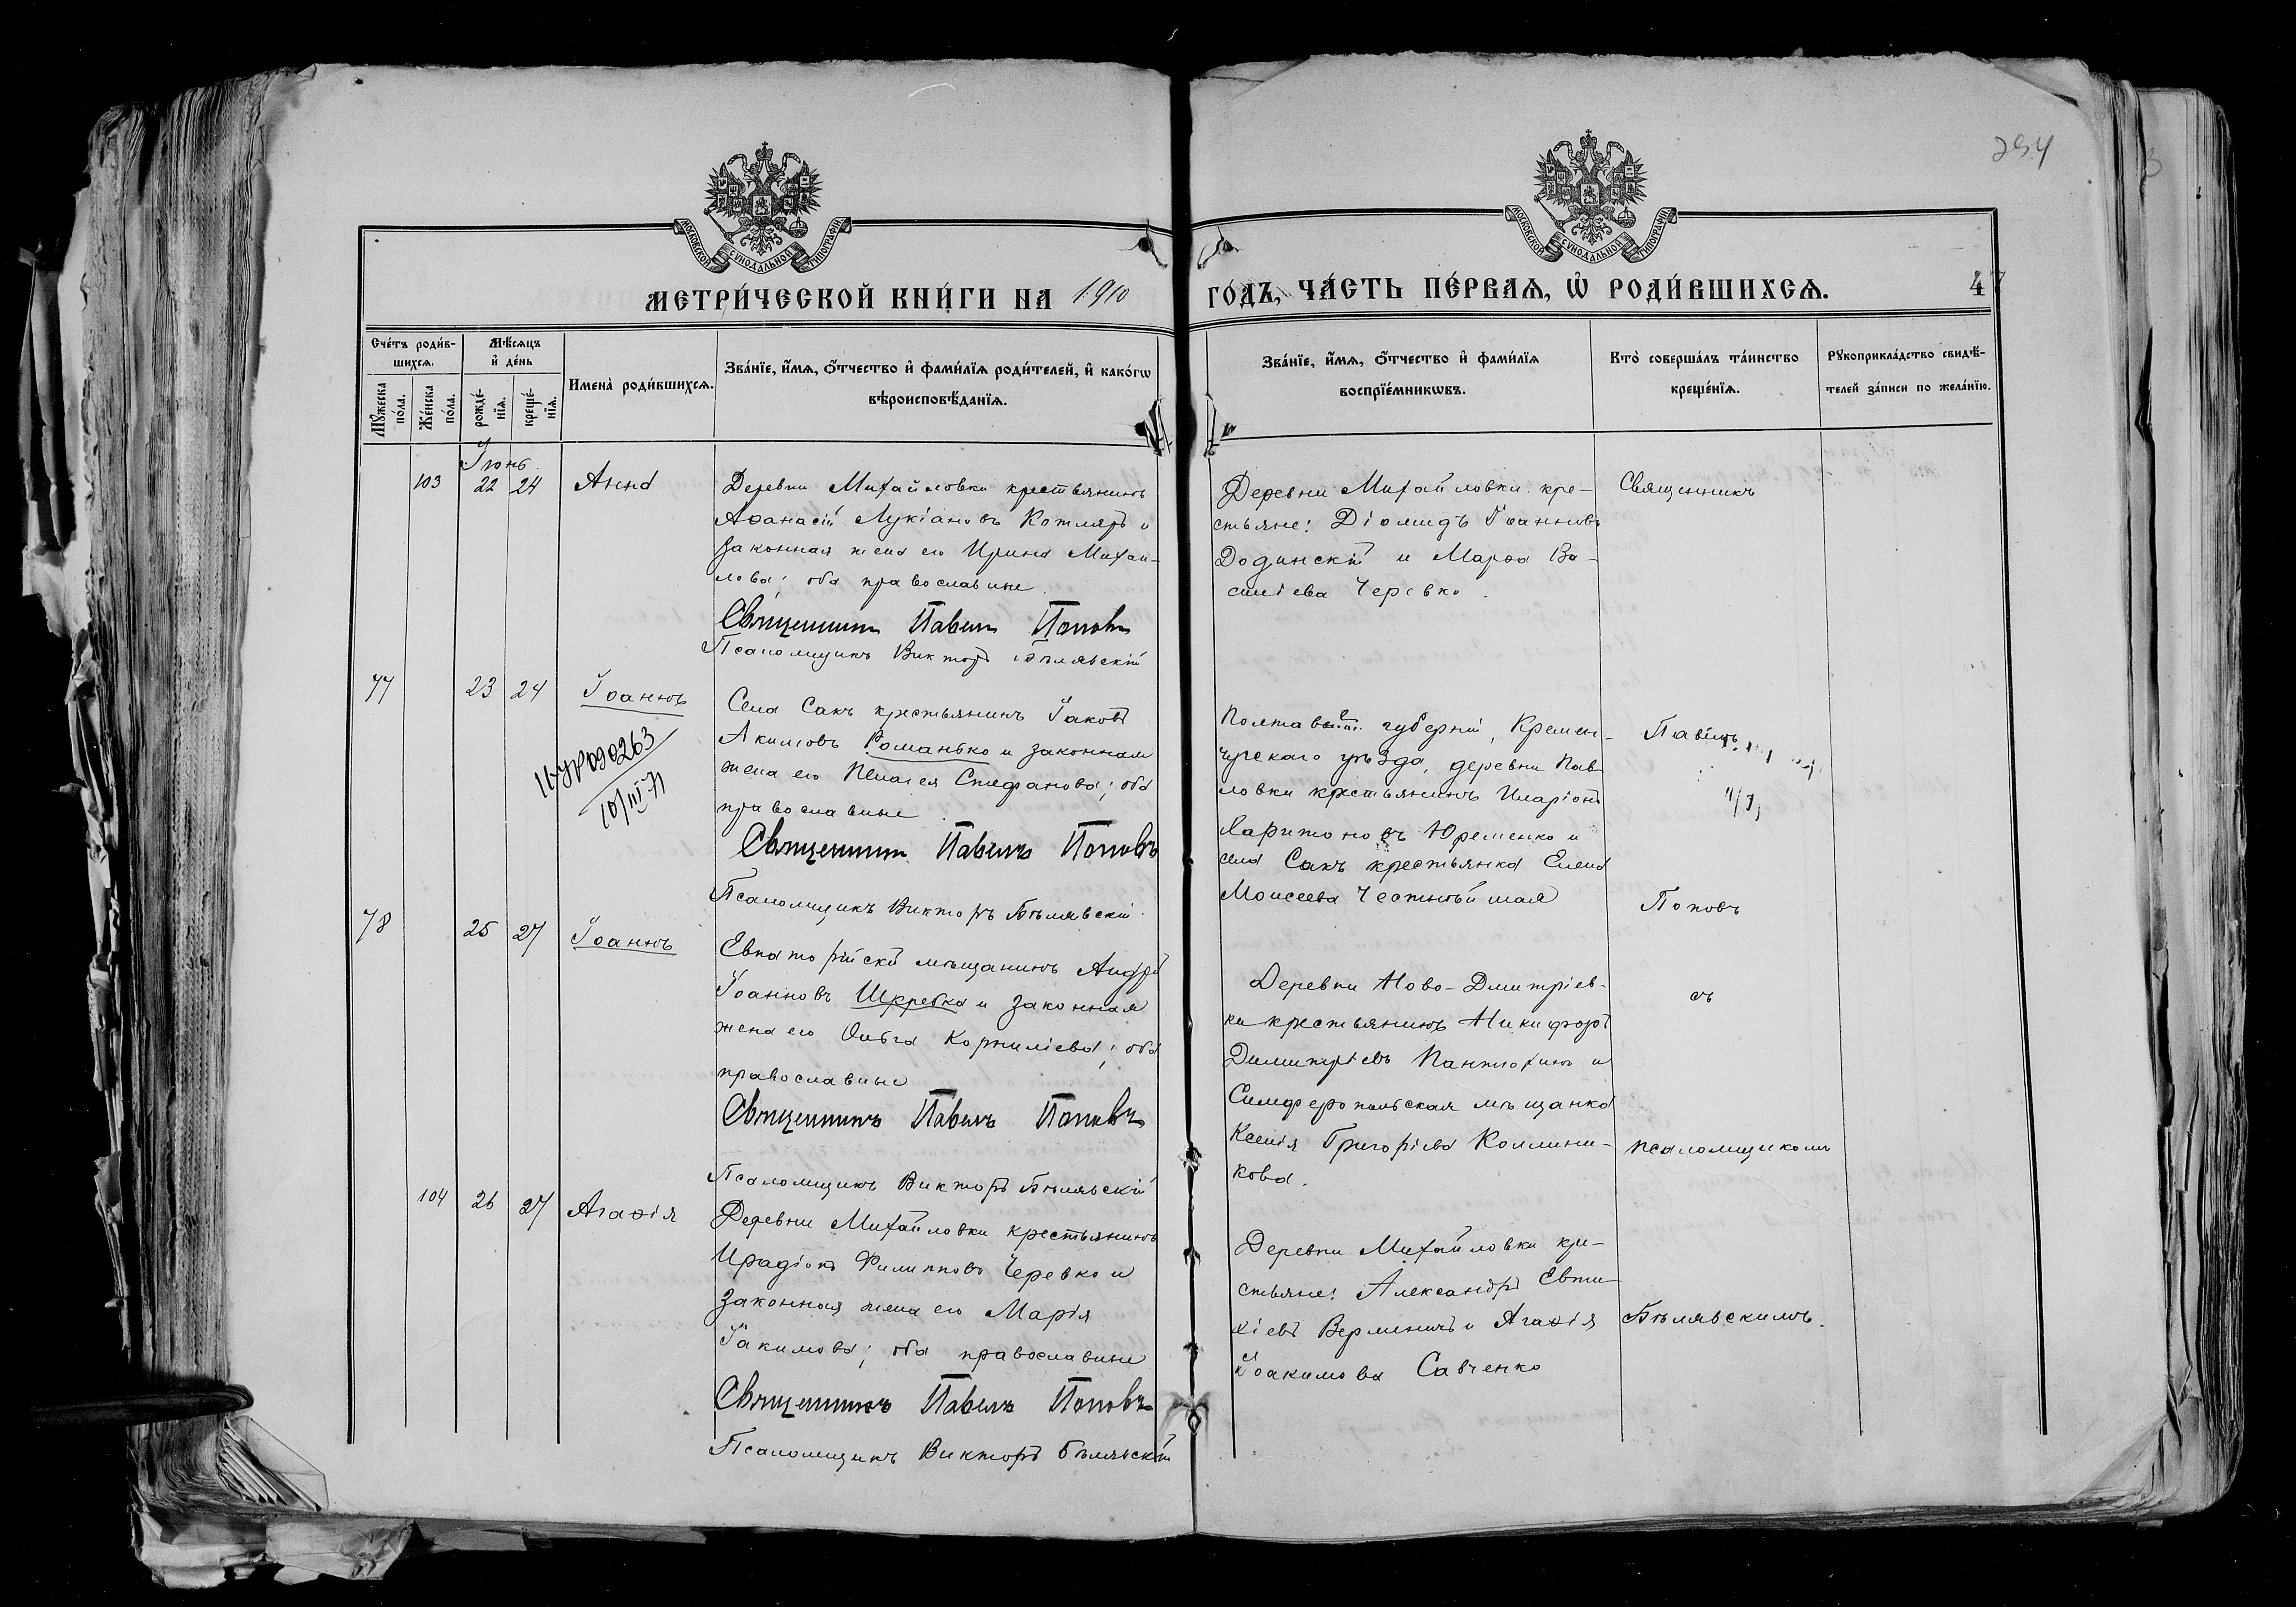 254
МОСКОВСКОЙ СѴНОДАЛЬНОЙ ТИПОГРАФІИ
МОСКОВСКОЙ СѴНОДАЛЬНОЙ ТИПОГРАФІИ
МЕТРИ́ЧЕСКОЙ КНИ́ГИ НА 1910
ГО́ДЪ, ЧА́СТЬ ПЕ́РВАѦ, Ѡ҆ РОДИ́ВШИХСѦ. 47
Сче́тъ роди́в-
шихсѧ.
Мꙋ́жеска по́ла.
Же́нска по́ла.
Мѣ́сѧцъ
и҆ де́нь
рожде́-
нїѧ.
креще́-
нїѧ.
Имена̀ роди́вшихсѧ.
Зва́нїе, и҆́мѧ, ѻ҆́тчество и҆ фами́лїѧ роди́телей, и҆ како́гѡ
вѣроисповѣ́данїѧ.
Зва́нїе, и҆́мѧ, ѻ҆́тчество и҆ фами́лїѧ
воспрїе́мникѡвъ.
Кто̀ соверша́лъ та́инство
креще́нїѧ.
Рꙋкоприкла́дство свидѣ́-
телей за́писи по жела́нїю.
Іюнь
103 22 24 Анна
Деревни Михайловки крестьянинъ
Аѳанасій Лукіановъ Котляръ и
законная жена его Ирина Михаи-
лова; оба православные
Священникъ Павелъ Поповъ
Псаломщикъ Викторъ Бѣлявскій
Деревни Михайловки кре-
стьяне: Діомидъ Іоанновъ
Додинскій и Марѳа Ва-
силіева Черевко.
Священникъ
77 23 24 Іоаннъ
10/III 71
Села Сакъ крестьянинъ Іаковъ
Акимовъ Романько и законная
жена его Пелагея Стефанова; оба
православные.
Священникъ Павелъ Поповъ
Псаломщикъ Викторъ Бѣлявскій.
губерніи, Кремен-
чугскаго уѣзда, деревни Пав
ловки крестьянинъ Иларіонъ
Харитоновъ Юременко и
села Сакъ крестьянка Елена
Моисеева Честнѣйшая
Павелъ
Поповъ
78 25 27 Іоаннъ
Евпаторійскій мѣщанинъ Андрей
Іоанновъ Шкребка и законная
жена его Ольга Корниліева; оба
православные
Священникъ Павелъ Поповъ
Псаломщикъ Викторъ Бѣлявскій
Деревни Ново-Димитріев-
ки крестьянинъ Никифоръ
Димитріевъ Пантюхинъ и
Симферопольская мѣщанка
Ксенія Григоріева Коллини-
кова.
съ
псаломщикомъ
104 26 27 Агаѳія
Деревни Михайловки крестьянинъ
Иродіонъ Филипповъ Черевко и
законная жена его Марія
Іакимова; оба православные
Священникъ Павелъ Поповъ
Псаломщикъ Викторъ Бѣлявскій
Деревни Михайловки кре-
стьяне: Александръ Евти-
хіевъ Верменичъ и Агаѳія
Іоакимова Савченко
Бѣлявскимъ.